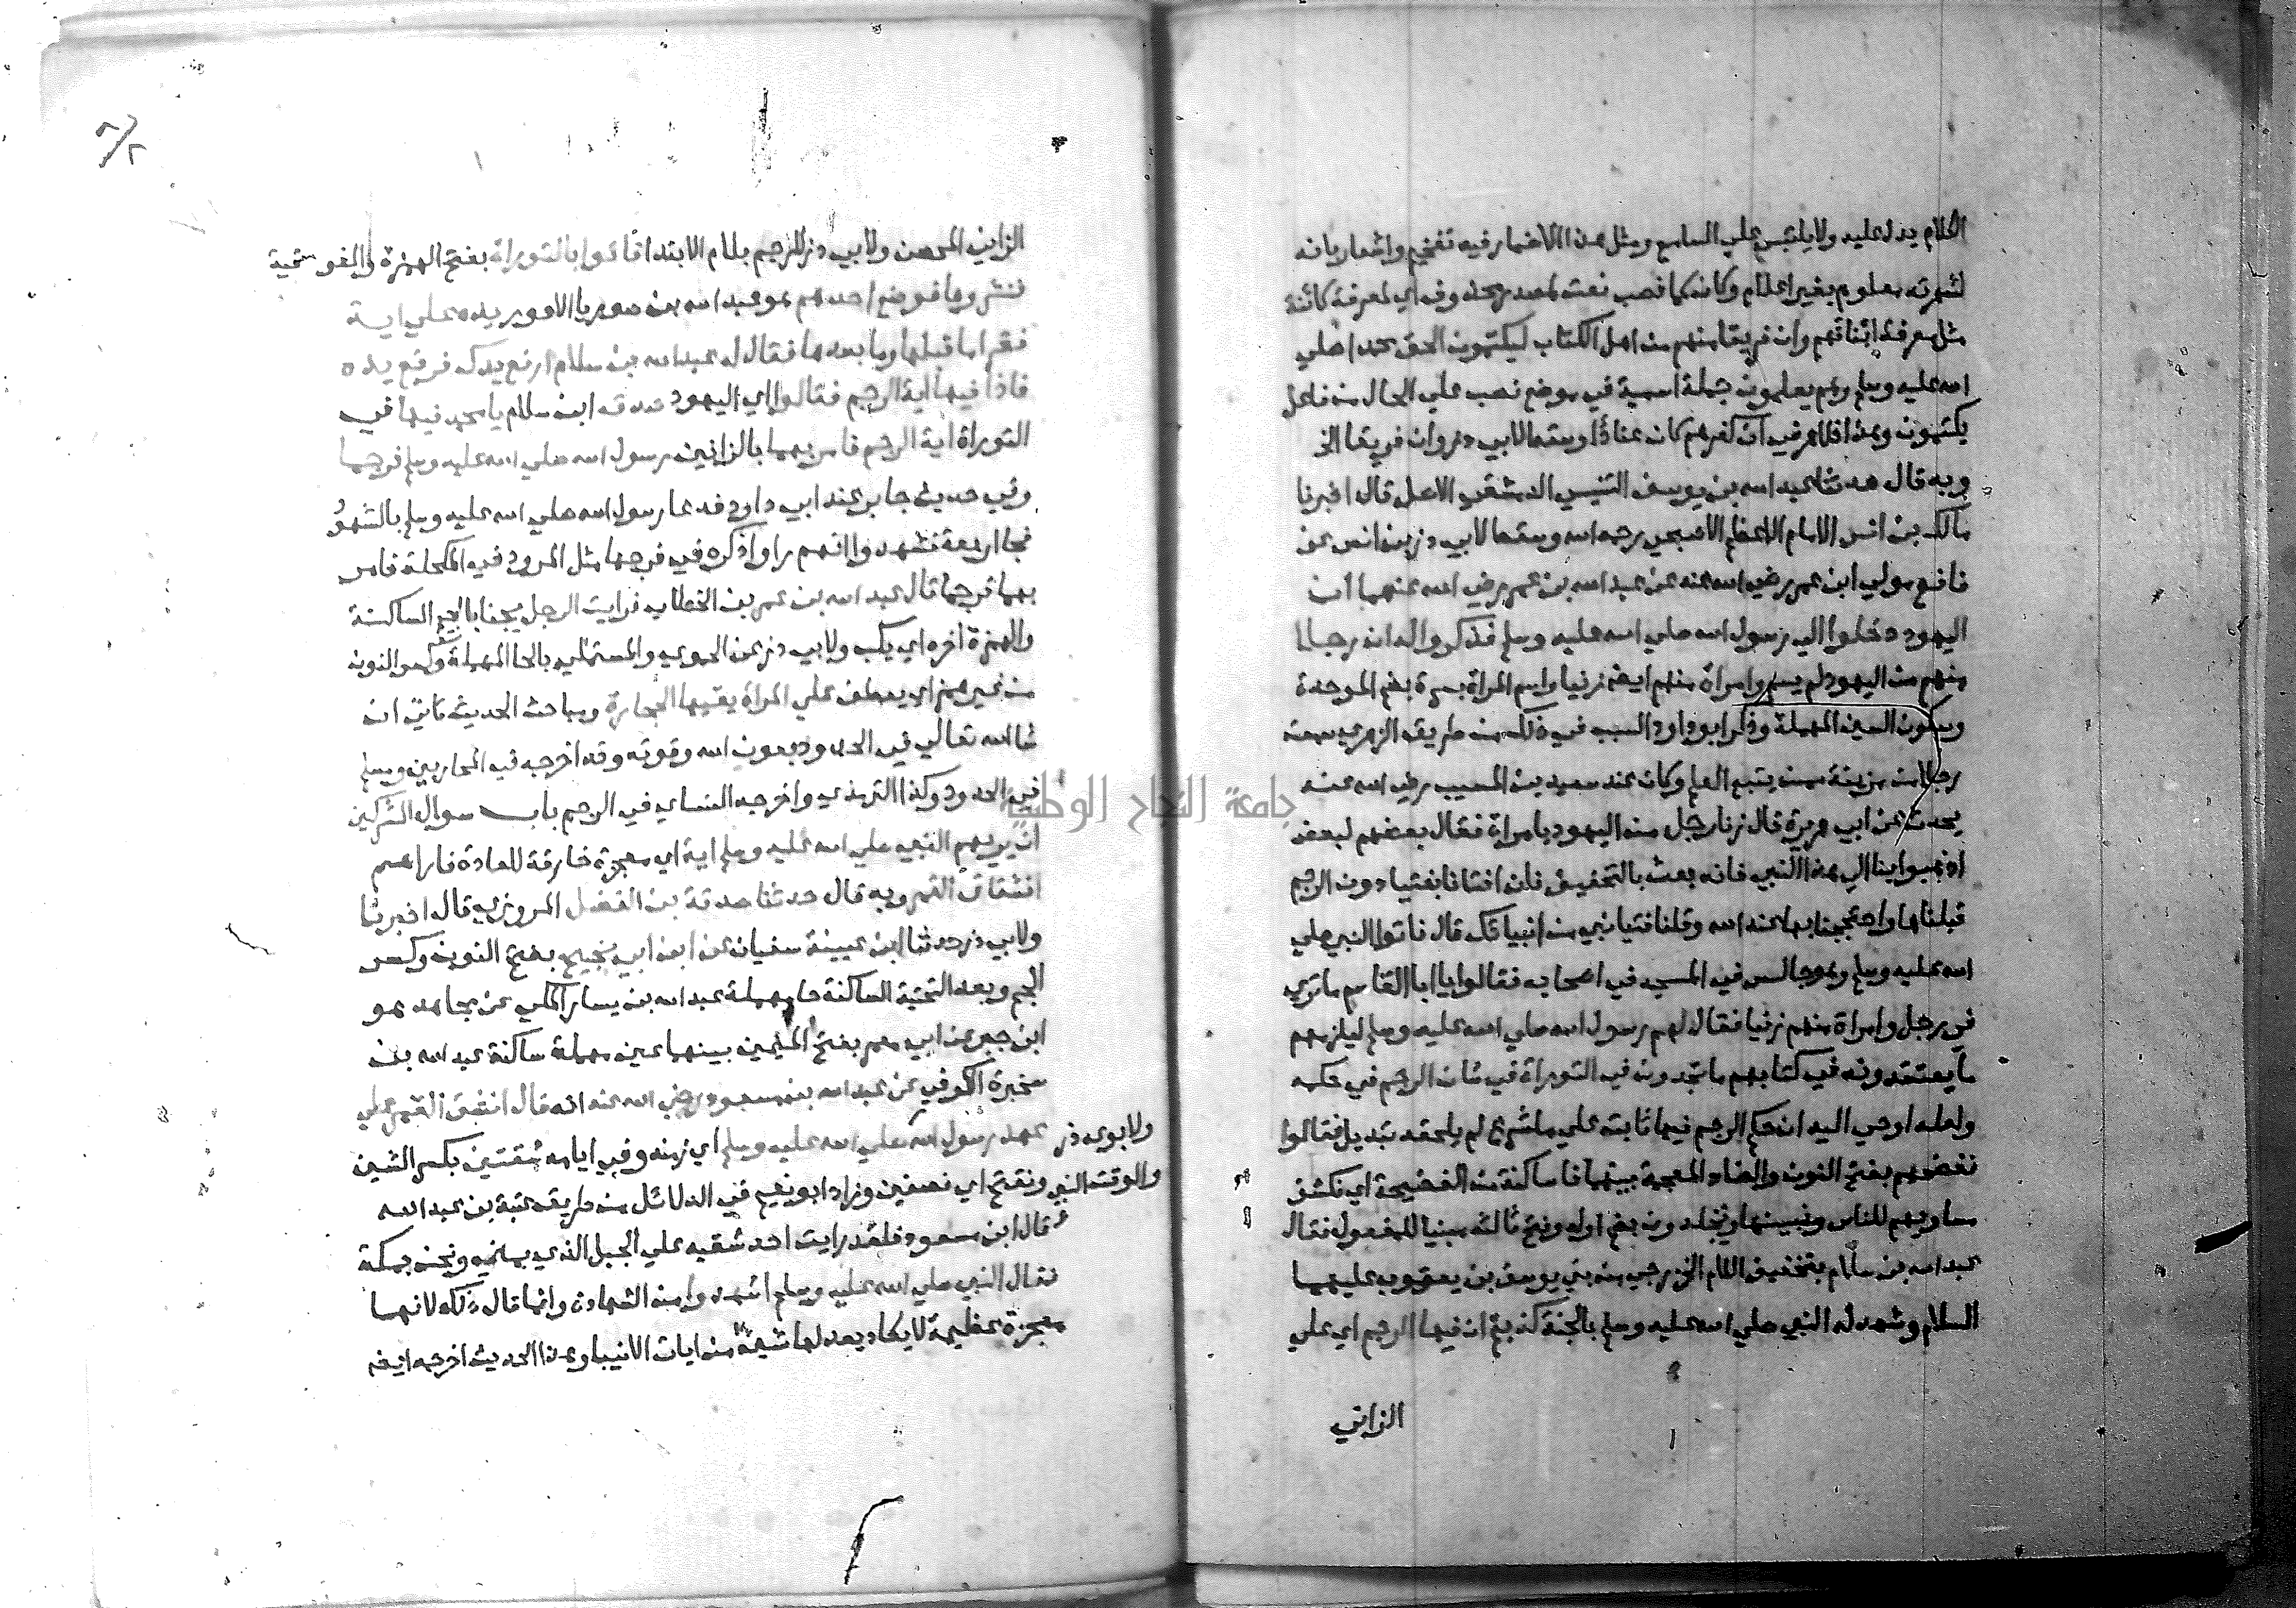 الكلام يدل عليه ولا يلتبس علي السامع ومثل هذا الاضمار فيه تفخيم واشعار بانه
لشهرته معلوم بغير اعلام وكاف كما نصب نعت لمصدر محذوف اي لمعرفة كائنة
مثل معرفة ابنائهم وان فريقا منهم من اهل الكتاب ليكتمون الحق محمدا صلي
الله عليه وسلم وهم يعلمون جملة اسمية في موضع نصب علي الحال من فاعل
يكتمون وهذا ظاهر في ان كفرهم كان عنادا وسقط لابي ذر وان فريقا الخ
وبه قال حدثنا عبد الله بن يوسف التنيسي الدمشقي الاصل قال اخبرنا
مالك بن انس الامام الاعظم الاصبحي رحمه الله وسقط لابي ذر بن انس عن
نافع مولي ابن عمر رضي الله عنه عن عبد الله بن عمر رضي الله عنهما ان
اليهود دخلوا الي رسول الله صلي الله عليه وسلم فذكروا له ان رجلا
منهم من اليهود لم يسم وامراة منهم ايضا زنيا واسم المراة بسرة بضم الموحدة
وسكون السين المهملة وذكر ابو داود السبب في ذلك من طريق الزهري سمعت
رجلا من مزينة ممن يتبع العلم وكان عند سعيد بن المسيب رضي الله عنه
يحدث عن ابي هريرة قال زنا رجل من اليهود بامراة فقال بعضهم لبعض
اذهبوا بنا الي هذا النبي فانه بعث بالتخفيف فان افتانا بفتيا دون الرجم
قبلناها واحتججنا بها عند الله وقلنا فتيا نبي من انبيائك قال فاتوا النبي صلي
الله عليه وسلم وهو جالس في المسجد في اصحابه فقالوا يا ابا القاسم ما تري
في رجل وامراة منهم زنيا فقال لهم رسول الله صلي الله عليه وسلم ليلزمهم
ما يعتقدونه في كتابهم ما تجدون في التوراة في شان الرجم في حكمه
ولعله اوحي اليه ان حكم الرجم فيها ثابت علي ما شرع لم يلحقه تبديل فقالوا
نفضحهم بفتح النون والضاد المعجمة بينهما فا ساكنة من الفضيحة اي نكشف
مساويهم للناس ونبينها ويجلدون بضم اوله وفتح ثالثه مبنيا للمفعول فقال
عبد الله بن سلام بتخفيف اللام الخزرجي من بني يوسف بن يعقوب عليهما
السلام وشهد له النبي صلي الله عليه وسلم بالجنة كذبتم ان فيها الرجم اي علي
الزاني
الزاني المحصن ولابي ذر للرجم بلام الابتدا فاتوا بالتوراة بفتح الهمزة والفوقية
فنشروها فوضع احدهم هو عبد الله بن صوريا الاعور يده علي اية
فقرا ما قبلها وما بعدها فقال له عبد الله بن سلام ارفع يدك فرفع يده
فاذا فيها اية الرجم فقالوا اي اليهود صدق ابن سلام يا محمد فيها في
التوراة اية الرجم فامر بهما بالزانيين رسول الله صلي الله عليه وسلم فرجما
وفي حديث جابر عند ابي داود فدعا رسول الله صلي الله عليه وسلم بالشهود
فجا اربعة فشهدوا انهم راوا ذكره في فرجها مثل المرود في المكحلة فامر
بهما فرجما قال عبد الله بن عمر بن الخطاب فرايت الرجل يجنا بالجيم الساكنة
والهمزة اخره اي يكب ولابي ذر عن الحموي والمستملي بالحا المهملة وكسر النون
من غير همز اي يعطف علي المراة يقيها الحجارة ومباحث الحديث تاتي ان
شا الله تعالي في الحدود بعون الله وقوته وقد اخرجه في المحاربين ومسلم
في الحدود وكذا الترمذي واخرجه النساي في الرجم باب سوال المشركين
ان يريهم النبي صلي الله عليه وسلم اية اي معجزة خارقة للعادة فاراهم
انشقاق القمر وبه قال حدثنا صدقة بن الفضل المروزي قال اخبرنا
ولابي ذر حدثنا ابن عيينة سفيان عن ابن ابي نجيح بفتح النون وكسر
الجيم وبعد التحتية الساكنة حا مهملة عبد الله بن يسار المكي عن مجاهد هو
ابن جبر عن ابي معمر بفتح الميمين بينهما عين مهملة ساكنة عبد الله بن
سخبرة الكوفي عن عبد الله بن مسعود رضي الله عنه انه قال انشق القمر علي
عهد رسول الله صلي الله عليه وسلم اي زمنه وفي ايامه شقتين بكسر الشين
ولابوي ذر
والوقت النبي
وتفتح اي نصفين وزاد ابو نعيم في الدلائل من طريق عتبة بن عبد الله
قال ابن مسعود فلقد رايت احد شقيه علي الجبل الذي بمني ونحن بمكة
فقال النبي صلي الله عليه وسلم اشهدوا من الشهادة وانما قال ذلك لانها
معجزة عظيمة لا يكاد يعدلها شي من ايات الانبيا وهذا الحديث اخرجه ايضا
جامعة النجاح الوطنية